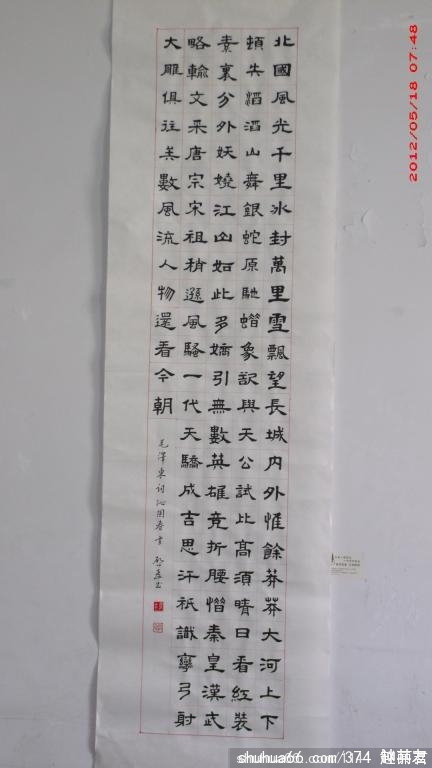 北國風光千里冰封萬里雪飄望長城內外惟餘莽莽大河上下
頓失滔滔山舞銀蛇原馳蜡象欲與天公試比高須晴日看紅裝
素裹分外妖嬈江山如此多嬌引無數英雄竞折腰惜秦皇漢武
略輸文采唐宗宋祖稍遜風騷一代天驕成吉思汗祇識彎弓射
大雕俱往矣數風流人物還看今朝
毛澤東词沁園春雪
2012/05/18 07:48